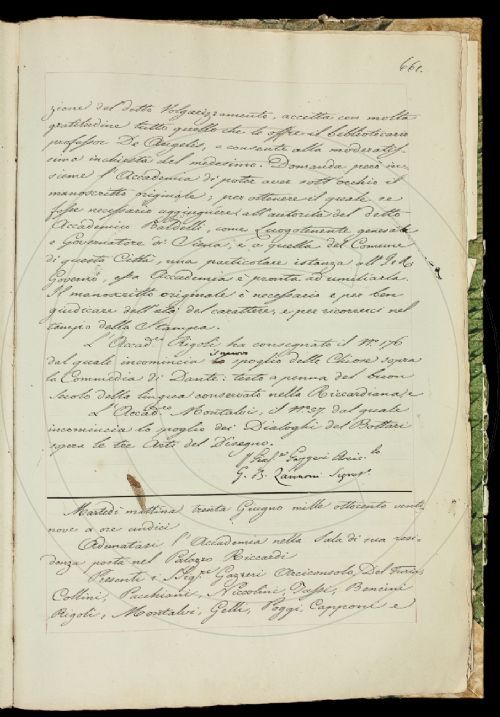 661.
zione del detto Volgarizzamento, accetta con molta
gratitudine tutto quello che le offre il bibliotecario
professor De Angelis, e consente alla moderatis=
sima inchiesta del medesimo. Domanda però in=
sieme l'Accademia di poter aver sott'occhio il
manoscritto originale; per ottenere il quale se
fosse necessario aggiugnere all'autorità del detto
Accademico Baldelli, come Luogotenente generale
e Governatore di Siena, e a quella del Comune
di questa Città, una particolare istanza all'I. e R.
Governo, essa Accademia è pronta ad umiliarla.
Il manoscritto originale è necessario e per ben
giudicare dell'età del carattere, e per ricorrerci nel
tempo della Stampa.
L'Accad.co Rigoli ha consegnato il N.º 176
dal quale incomincia lo spoglio delle Chiose sopra
la Commedia di Dante: testo a penna del buon
Secolo della lingua conservate nella Riccardiana, e
L'Accad.co Montalvi, il N.º 27 dal quale
incomincia lo spoglio dei Dialoghi del Bottari
sopra le tre Arti del Disegno.
Gius.e Gazzeri Arcic.lo
G. B. Zannoni Segret.
Martedì mattina trenta Giugno mille ottocento venti
nove a ore undici
Adunatasi l'Accademia nella Sala di sua resi=
denza posta nel Palazzo Riccardi
Presenti i Sigg.ri Gazzeri Arciconsolo, Del Furia,
Collini, Pacchiani, Niccolini, Tassi, Bencini
Rigoli, Montalvi, Gelli, Poggi, Capponi e